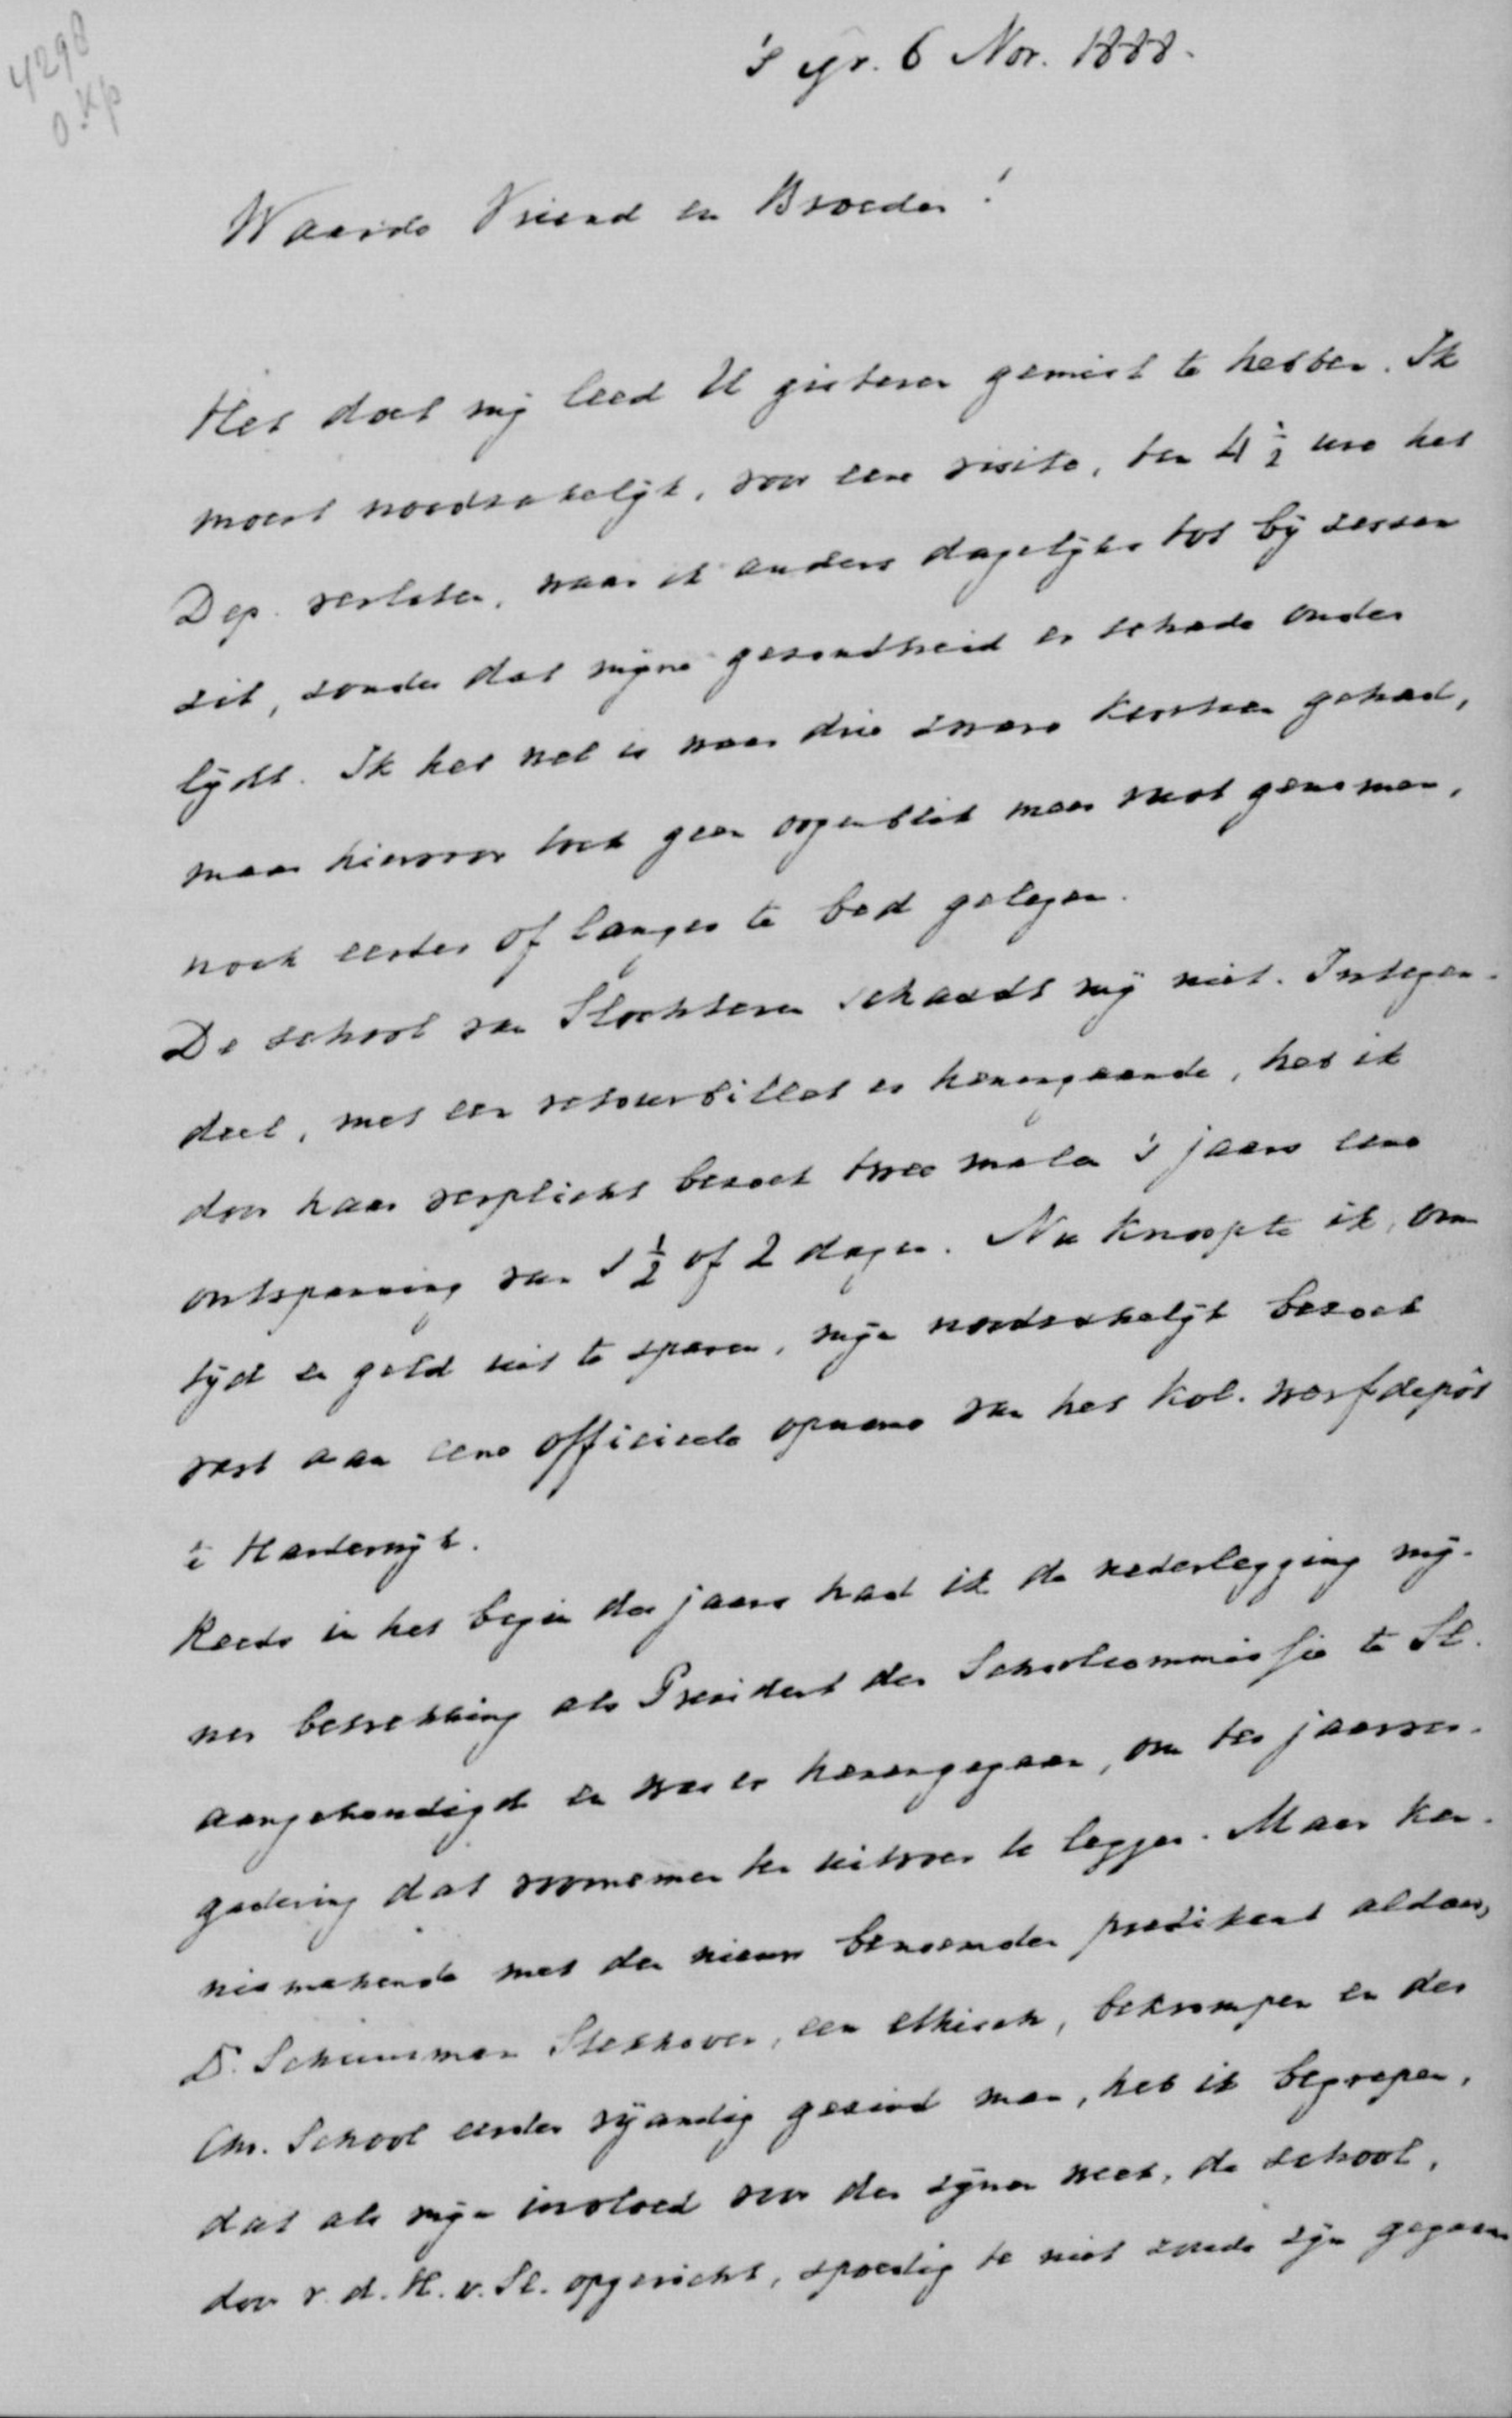 4298
O.Kp
's Gr. 6 Nov. 1888.
Waarde Vriend en Broeder!
Het doet mij leed U gisteren gemist te hebben. Ik
moest noodzakelijk, voor eene visite, ten 4 1/2 ure het
Dep. verlaten, waar ik anders dagelijks tot bij zessen
zit, zonder dat mijne gezondheid er schade onder
lijdt. Ik heb wel is waar drie zware koortsen gehad,
maar hiervoor toch geen oogenblik meer rust genomen,
noch eerder of langer te bed gelegen.
De school van Slochteren schaadt mij niet. Integen-
deel, met een retourbillet er henengaande, heb ik
door haar verplicht bezoek twee malen 's jaars eene
ontspanning van 1 1/2 of 2 dagen. Nu knoopte ik, om
tijd en geld uit te sparen, mijn noodzakelijk bezoek
vast aan eene officieele opname van het Kol. werfdepôt
te Harderwijk.
Reeds in het begin des jaars had ik de nederlegging mij-
ner betrekking als President der Schoolcommissie te Sl.
aangekondigd en was er henengegaan, om ter jaarver-
gadering dat voornemen ten uitvoer te leggen. Maar ken-
nis makende met den nieuw benoemden predikant aldaar,
Dr. Schuurman Stekhoven, een ethisch, bekrompen en der
Chr. School eerder vijandig gezind man, heb ik begrepen,
dat als mijn invloed voor den zijnen week, de school,
door v. d. H. v. Sl. opgericht, spoedig te niet zoude zijn gegaan